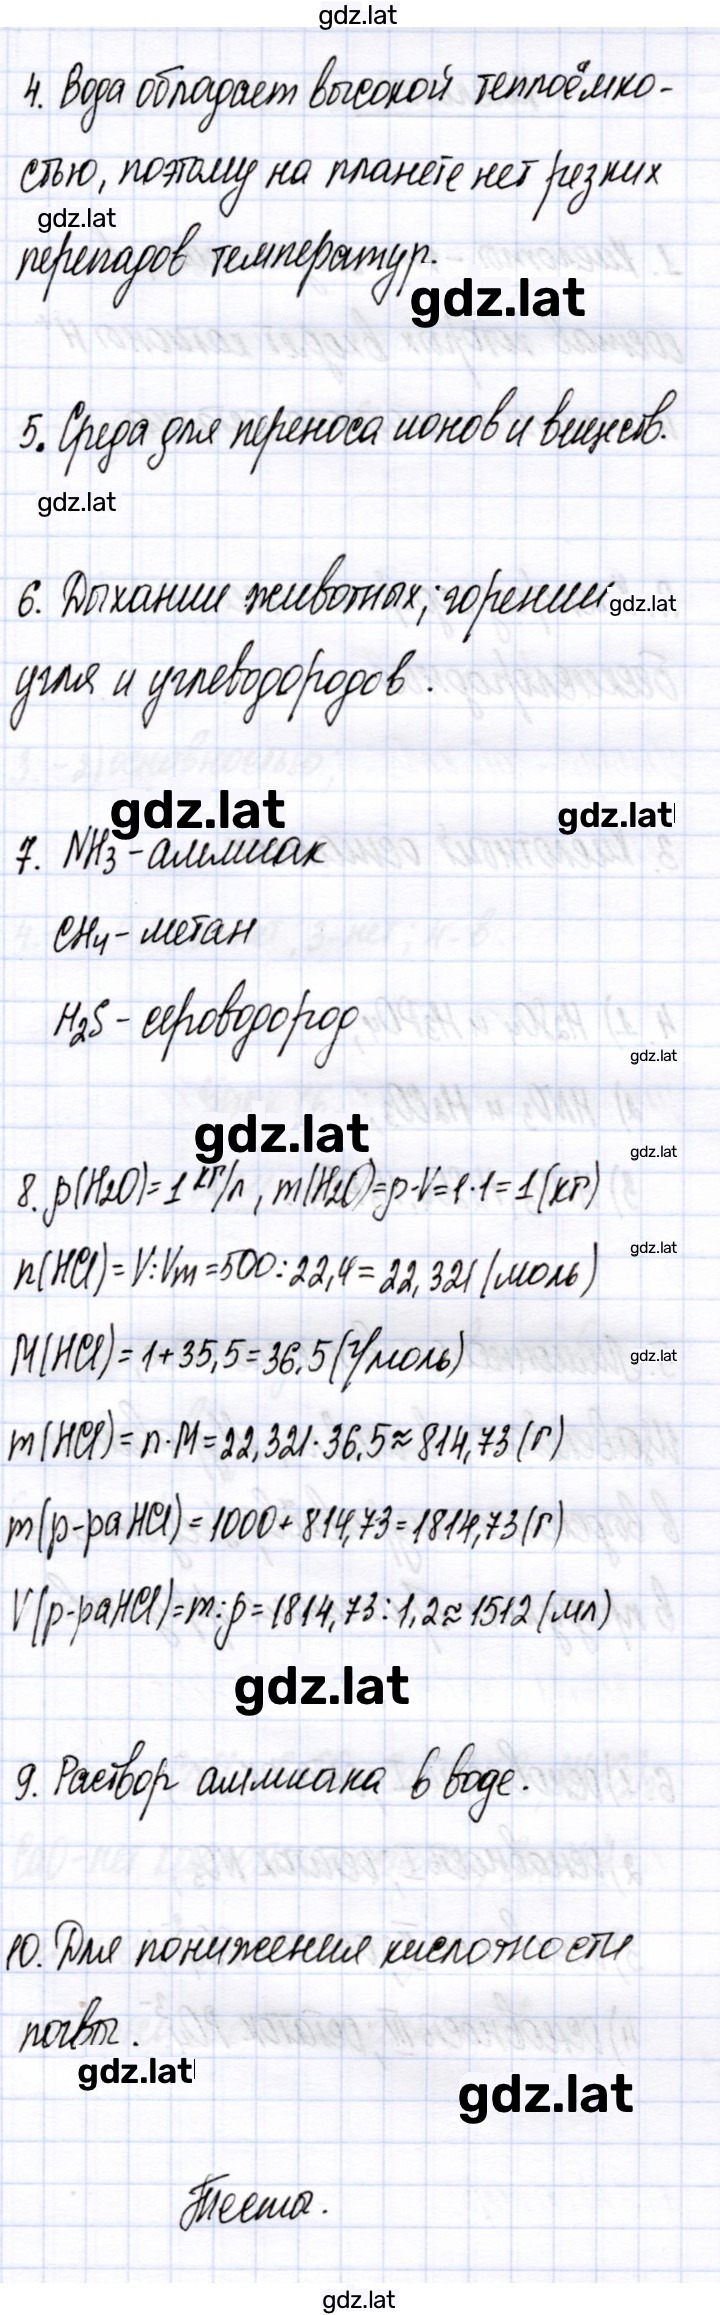 gdz.lat
4. Вода обладает высокой теплоёмко-
стью, поэтому на планете нет резких
gdz.lat
перепадов температур.
gdz.lat
5. Среда для переноса ионов и веществ.
gdz.lat
6. Дыхании животных, горении
gdz.lat
угля и углеводородов.
gdz.lat
gdz.lat
7. NH3 - аммиак
CH4 - метан
H2S - сероводород
gdz.lat
gdz.lat
gdz.lat
8. ρ(H2O)=1 кг/л, m(H2O)=ρ·V=1·1=1(кг)
gdz.lat
n(HCl)=V:Vm=500:22,4=22,321(моль)
M(HCl)=1+35,5=36,5(г/моль)
gdz.lat
m(HCl)=n·M=22,321·36,5≈814,73(г)
m(р-ра HCl)=1000+814,73=1814,73(г)
V(р-ра HCl)=m:ρ=1814,73:1,2≈1512(мл)
gdz.lat
9. Раствор аммиака в воде.
10. Для понижения кислотности
почвы.
gdz.lat
gdz.lat
Тесты.
gdz.lat